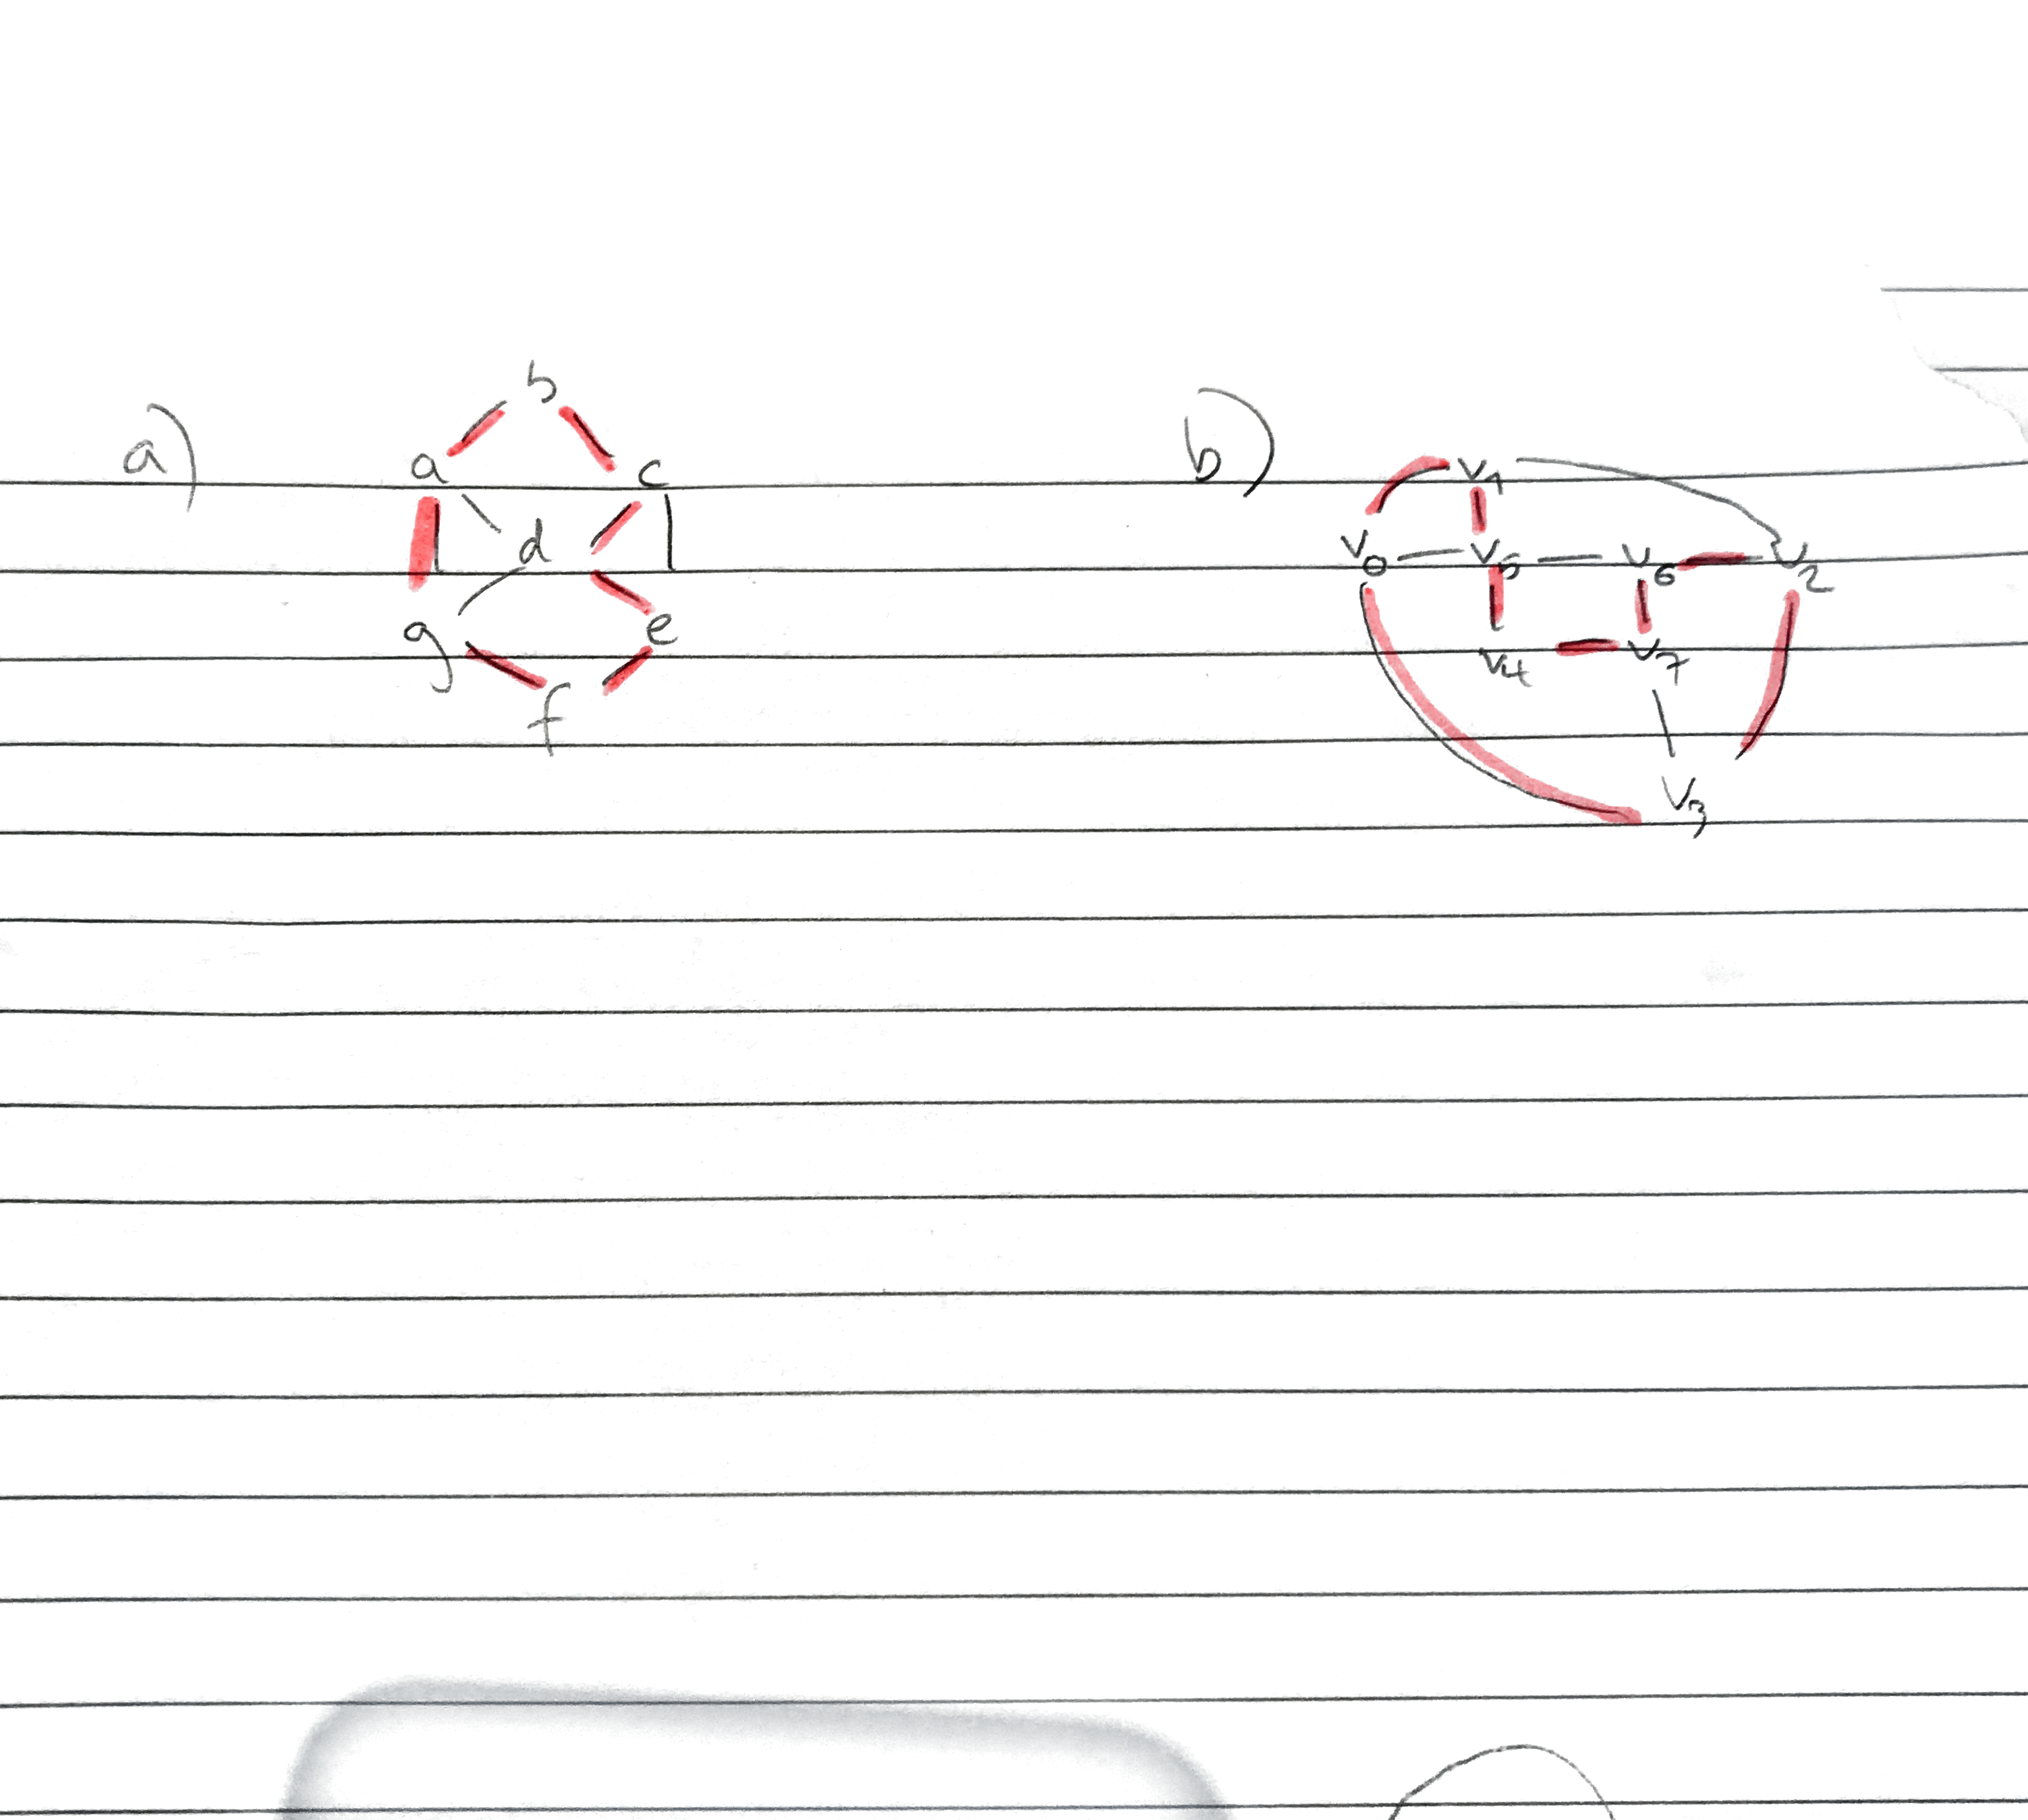 a)
b
a c
d
g e
f
b)
v1
v0 v5 v6 v2
v4 v7
v3